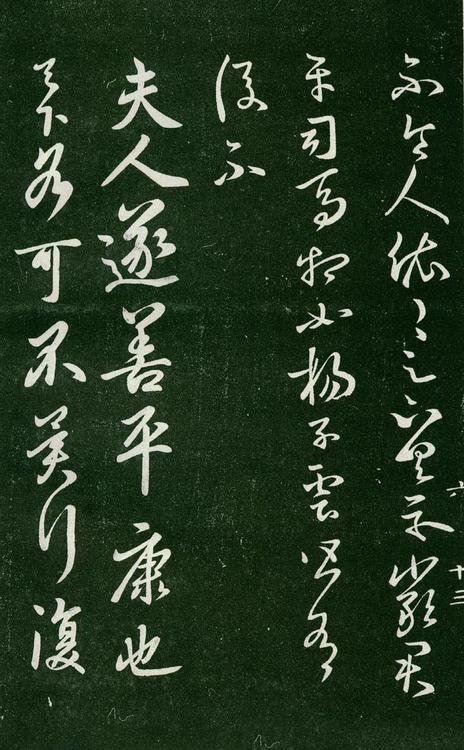 令人依〻具示嚴君
平司馬相如楊子雲皆有
後不
夫人遂善平康也
足下各可不冀行復
六
十三